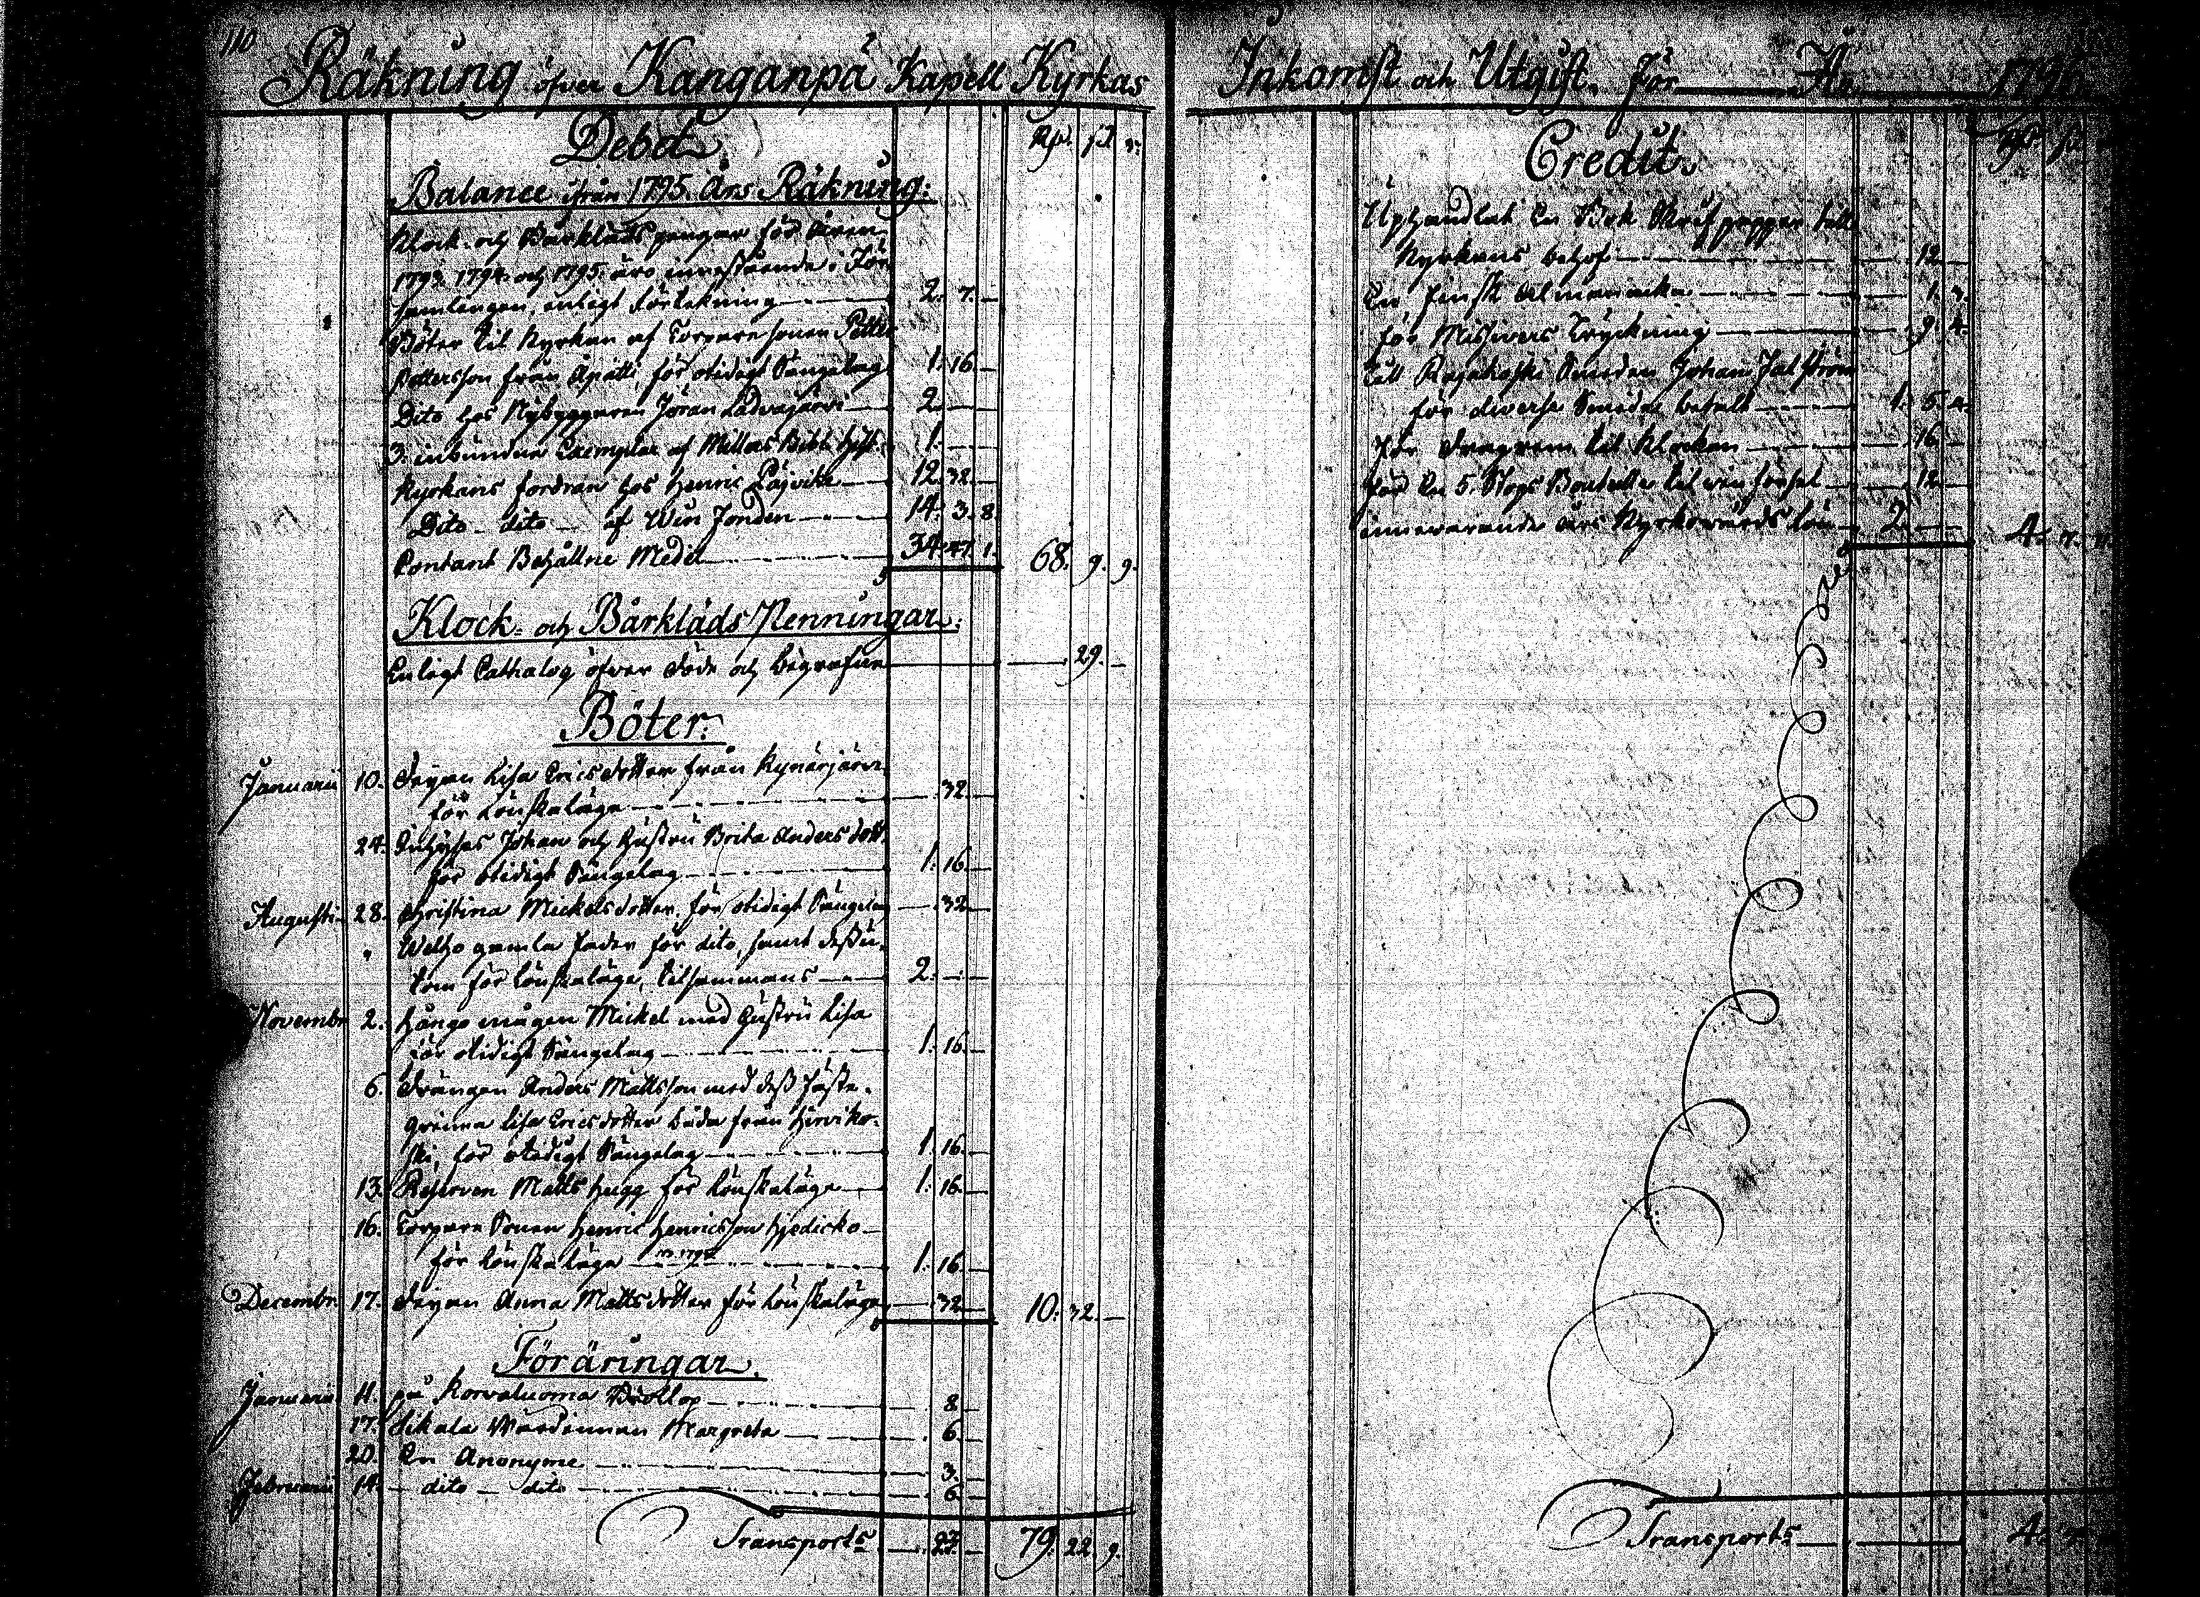 110
Räkning öfver Kanganpä Kapell Kyrkas
Debet
Rdr. sk. r.
Balance ifrån 1795. års Räkning:
Klock- och Bårkläds pengar för åren
1793. 1794. och 1795. äro innestående i För-
samlingen, enligt förtekning 2. 7. —
Böter til Kyrkan af Torpare sonen Petter
Pettersson från för otidigt Sängelag 1. 16. —
Dito hos Nybyggaren Jöran Ladvajärvi 2. — —
3. inbundna Exemplar af Millers Bibl. Hist. 1. — —
Kyrkans fordran hos Henric 12. 32. —
Dito — dito — af Win Fonden 14. 3. 8.
Contant Behållne Medel 34. 47. 1. 68. 9. 9.
Klock- och Bårkläds Penningar:
Enligt Cathalog öfver döde och begrafne — 29. —
Böter:
Januarii 10. Pigan Lisa Ericsdotter från Kynärjärvi
för Lönskaläge — 32. —
24. Inhyses Johan och hustru Brita Andersdott.
för otidigt Sängelag 1. 16. —
Augusti 28. Christina Mickelsdotter för otidigt Sängelag — 32. —
" gamla för dito, samt dessu-
tom för Lönskaläge, tilsammans 2. — —
Novembr. 2. mågen Mickel med hustru Lisa
för otidigt Sängelag 1. 16. —
6. Drängen Anders Mattsson med dess fäste-
qvinna Lisa Ericsdotter båda från Hirviko-
ski, för otidigt Sängelag 1. 16. —
13. Reserven Matts Hugg för Lönskaläge 1. 16. —
16. Torpare Sonen Henric Henricsson
för Lönskaläge 1. 16. —
Decembr. 17. Pigan Anna Mattsdotter för Lönskaläge — 32. — 10. 32. —
Föräringar.
Januarii 11. på Korvaluoma Bröllop — 8. —
17. Sikala Wärdinnan Margreta — 6. —
20. En Anonyme — 3. —
Februarii 14. — dito — dito — 6. —
Transport — 23. — 79. 22. 9.
Inkomst och Utgift. för År 1796.
Credit.
Uphandlat En Bok Skrif papper till
Kyrkans behof — 12. —
En finsk Almanacka — 1.
för Missivers Tryckning — 9. 4.
Till Smeden Johan
för diverse Smide betalt 1. 5. 4.
för til Klockan — 16. —
för En 5. Stops Boutelle til win förfsel — 12. —
innevarande års Kyrkowärds lön 2. — — 4.
Transport 4.